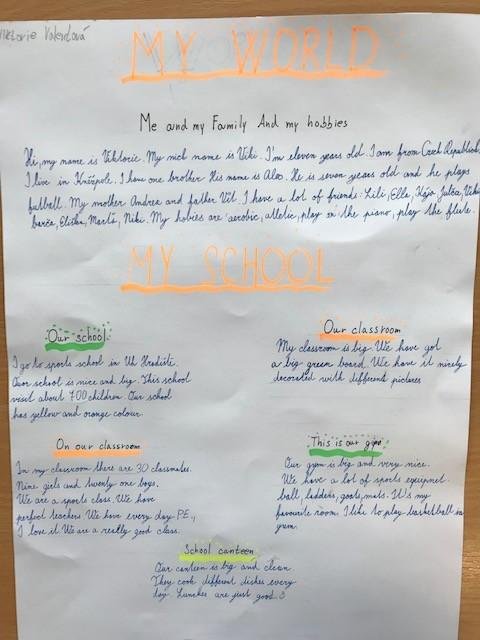 Viktorie Valentová
MY WORLD
Me and my Family And my hobbies
Hi, my name is Viktorie. My nick name is Viki. I'm eleven years old. I am from Czech Republick,
I live in Kněžpole. I have one brother. His name is Alex. He is seven years old and he plays
futball. My mother Andrea and father Vít. I have a lot of friends: Lili, Ella, Julča, Viki
barča, Eliška, Marťa, Niki. My hobies are aerobic, atletic, play on the piano, play the flute.
MY SCHOOL
Our school
I go to sports school in Uh Hradiště.
Our school is nice and big. This school
visit about 700 children. Our school
has yellow and orange colour.
Our classroom
My classroom is big. We have got
a big green board. We have it nicely
decorated with different pictures
On our classroom
In my classroom there are 30 classmates.
Nine girls and twenty one boys.
We are a sports class. We have
perfect teachers. We have every day P.E.,
I love it. We are a really good class.
This is our gym
Our gym is big and very nice.
We have a lot of sports equipmet.
ball, ladders, goals, mats. It's my
favourite room. I like to play basketball in
gym.
School canteen
Our canteen is big and clean.
They cook different dishes every
day. Lunches are just good.